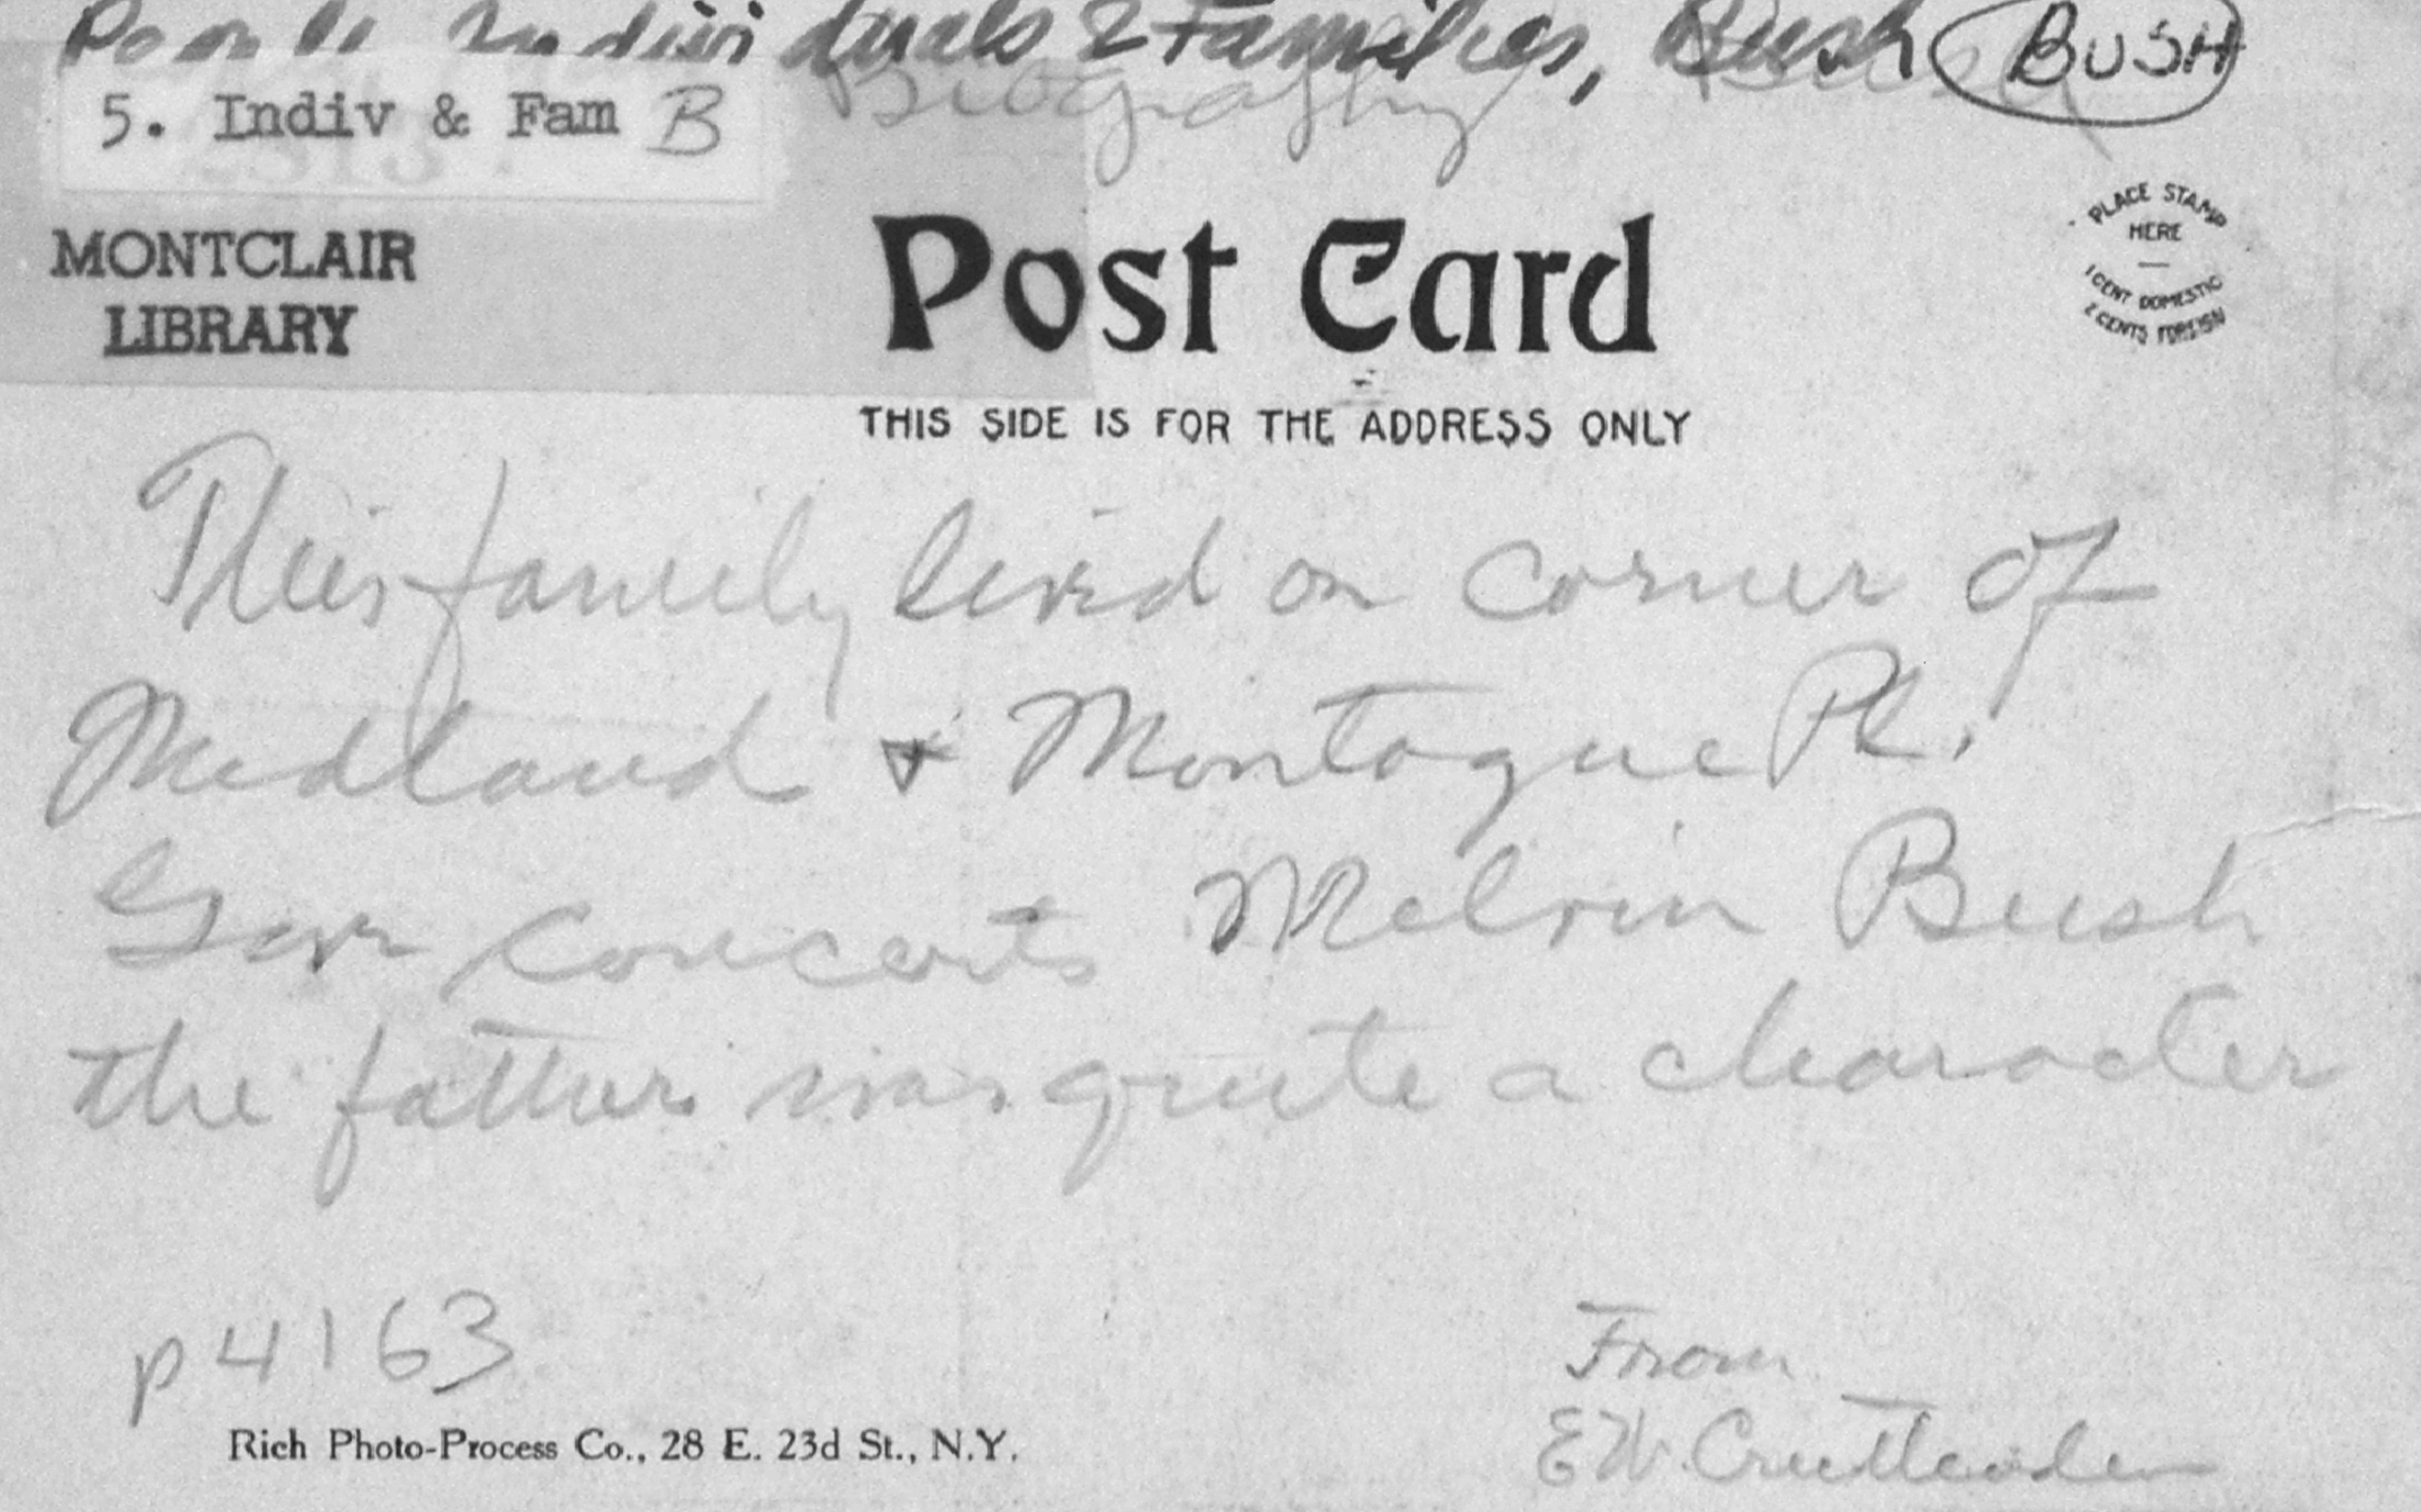 People Individuals & Families, Bush BUSH
Biography
5. Indiv & Fam B
MONTCLAIR
LIBRARY
Post Card
PLACE STAMP
HERE
1 CENT DOMESTIC
2 CENTS FOREIGN
THIS SIDE IS FOR THE ADDRESS ONLY
This family lived on corner of
Midland & Montague Pl.
Gave concerts Melvin Bush
the father was quite a character
p4163
From
E W. Cruttenden
Rich Photo-Process Co., 28 E. 23d St., N.Y.